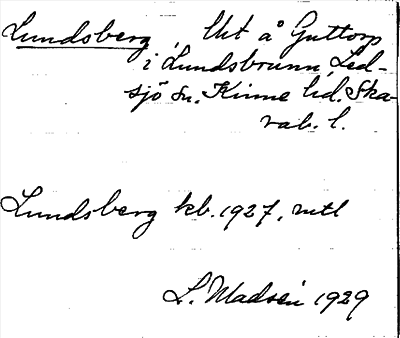 Lundsberg, Ut å Guttorp
i Lundsbrunn, Led-
sjö sn. Kinne hd. Ska-
rab. l.
Lundsberg kb. 1927, mtl
L. Madsén 1929